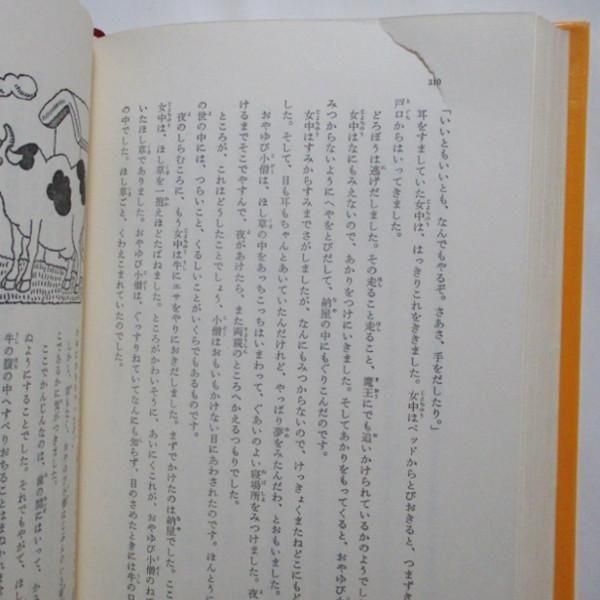 210
「いいともいいとも、なんでもやるぞ。さあさ、手をだしたり。」
耳をすましていた女中は、はっきりこれをききました。女中はベッドからとびおきると、つまずき
戸口からはいってきました。
どろぼうは逃げだしました。その走ること走ること、魔王にでも追いかけられているかのようでし
女中はなにもみえないので、あかりをつけにいきました。そしてあかりをもってくると、おやゆび
みつからないようにへやをとびだして、納屋の中にもぐりこんだのです。
女中はすみからすみまでさがしましたが、なんにもみつからないので、けっきょくまたねどこにもど
した。そして、目も耳もちゃんとあいていたんだけれど、やっぱり夢をみたんだわ、とおもいました。
おやゆび小僧は、ほし草の中をあっちこっちはいまわって、ぐあいのよい寝場所をみつけました。夜
けるまでそこでやすんで、夜があけたら、また両親のところへかえるつもりでした。
ところが、これはどうしたことでしょう、小僧はおもいもかけない目にあわされたのです。ほんとうに
の世の中には、つらいこと、くるしいことがいくらでもあるものです。
夜のしらむころに、もう女中は牛にエサをやりにおきだしました。まずでかけたのは納屋でした。ここ
女中は、ほし草を一抱えほどたばねました。ところがかわいそうに、あいにくこれが、おやゆび小僧のね
いたほし草でありました。おやゆび小僧は、ぐっすりねていてなんにも知らず、目のさめたときには牛の口
の中でした。ほし草ごと、くわえこまれていたのでした。
ここでかんじんなのは、歯の間にはいって、か
ぬようにすることでした。それでもやがて、ほし
牛の腹の中へすべりおちることはまぬかれま